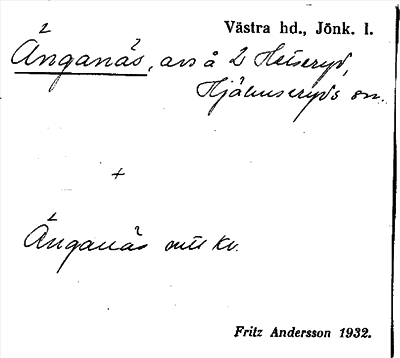 Västra hd., Jönk. l.
Ånganäs, avs å 2 Hetseryd,
Hjälmseryds sn.
+
Ånganäs outt kv.
Fritz Andersson 1932.